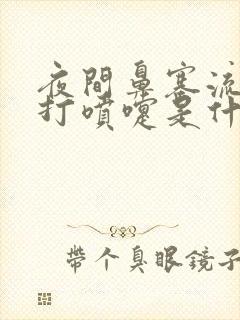 夜間鼻塞流
打噴嚏是什
帶个臭眼鏡子